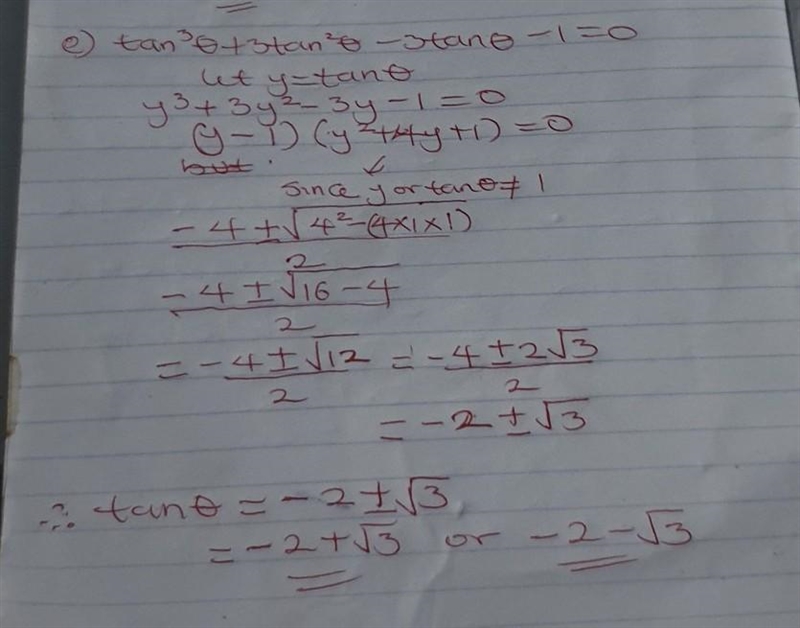 e) tan³θ+3tan²θ-3tanθ-1=0
let y=tanθ
y³+3y²-3y-1=0
(y-1)(y²+4y+1)=0
but
since y or tanθ≠1
-4±√4²-(4×1×1)
2
-4±√16-4
2
=-4±√12 = -4±2√3
2 2
=-2±√3
∴ tanθ = -2±√3
=-2+√3 or -2-√3